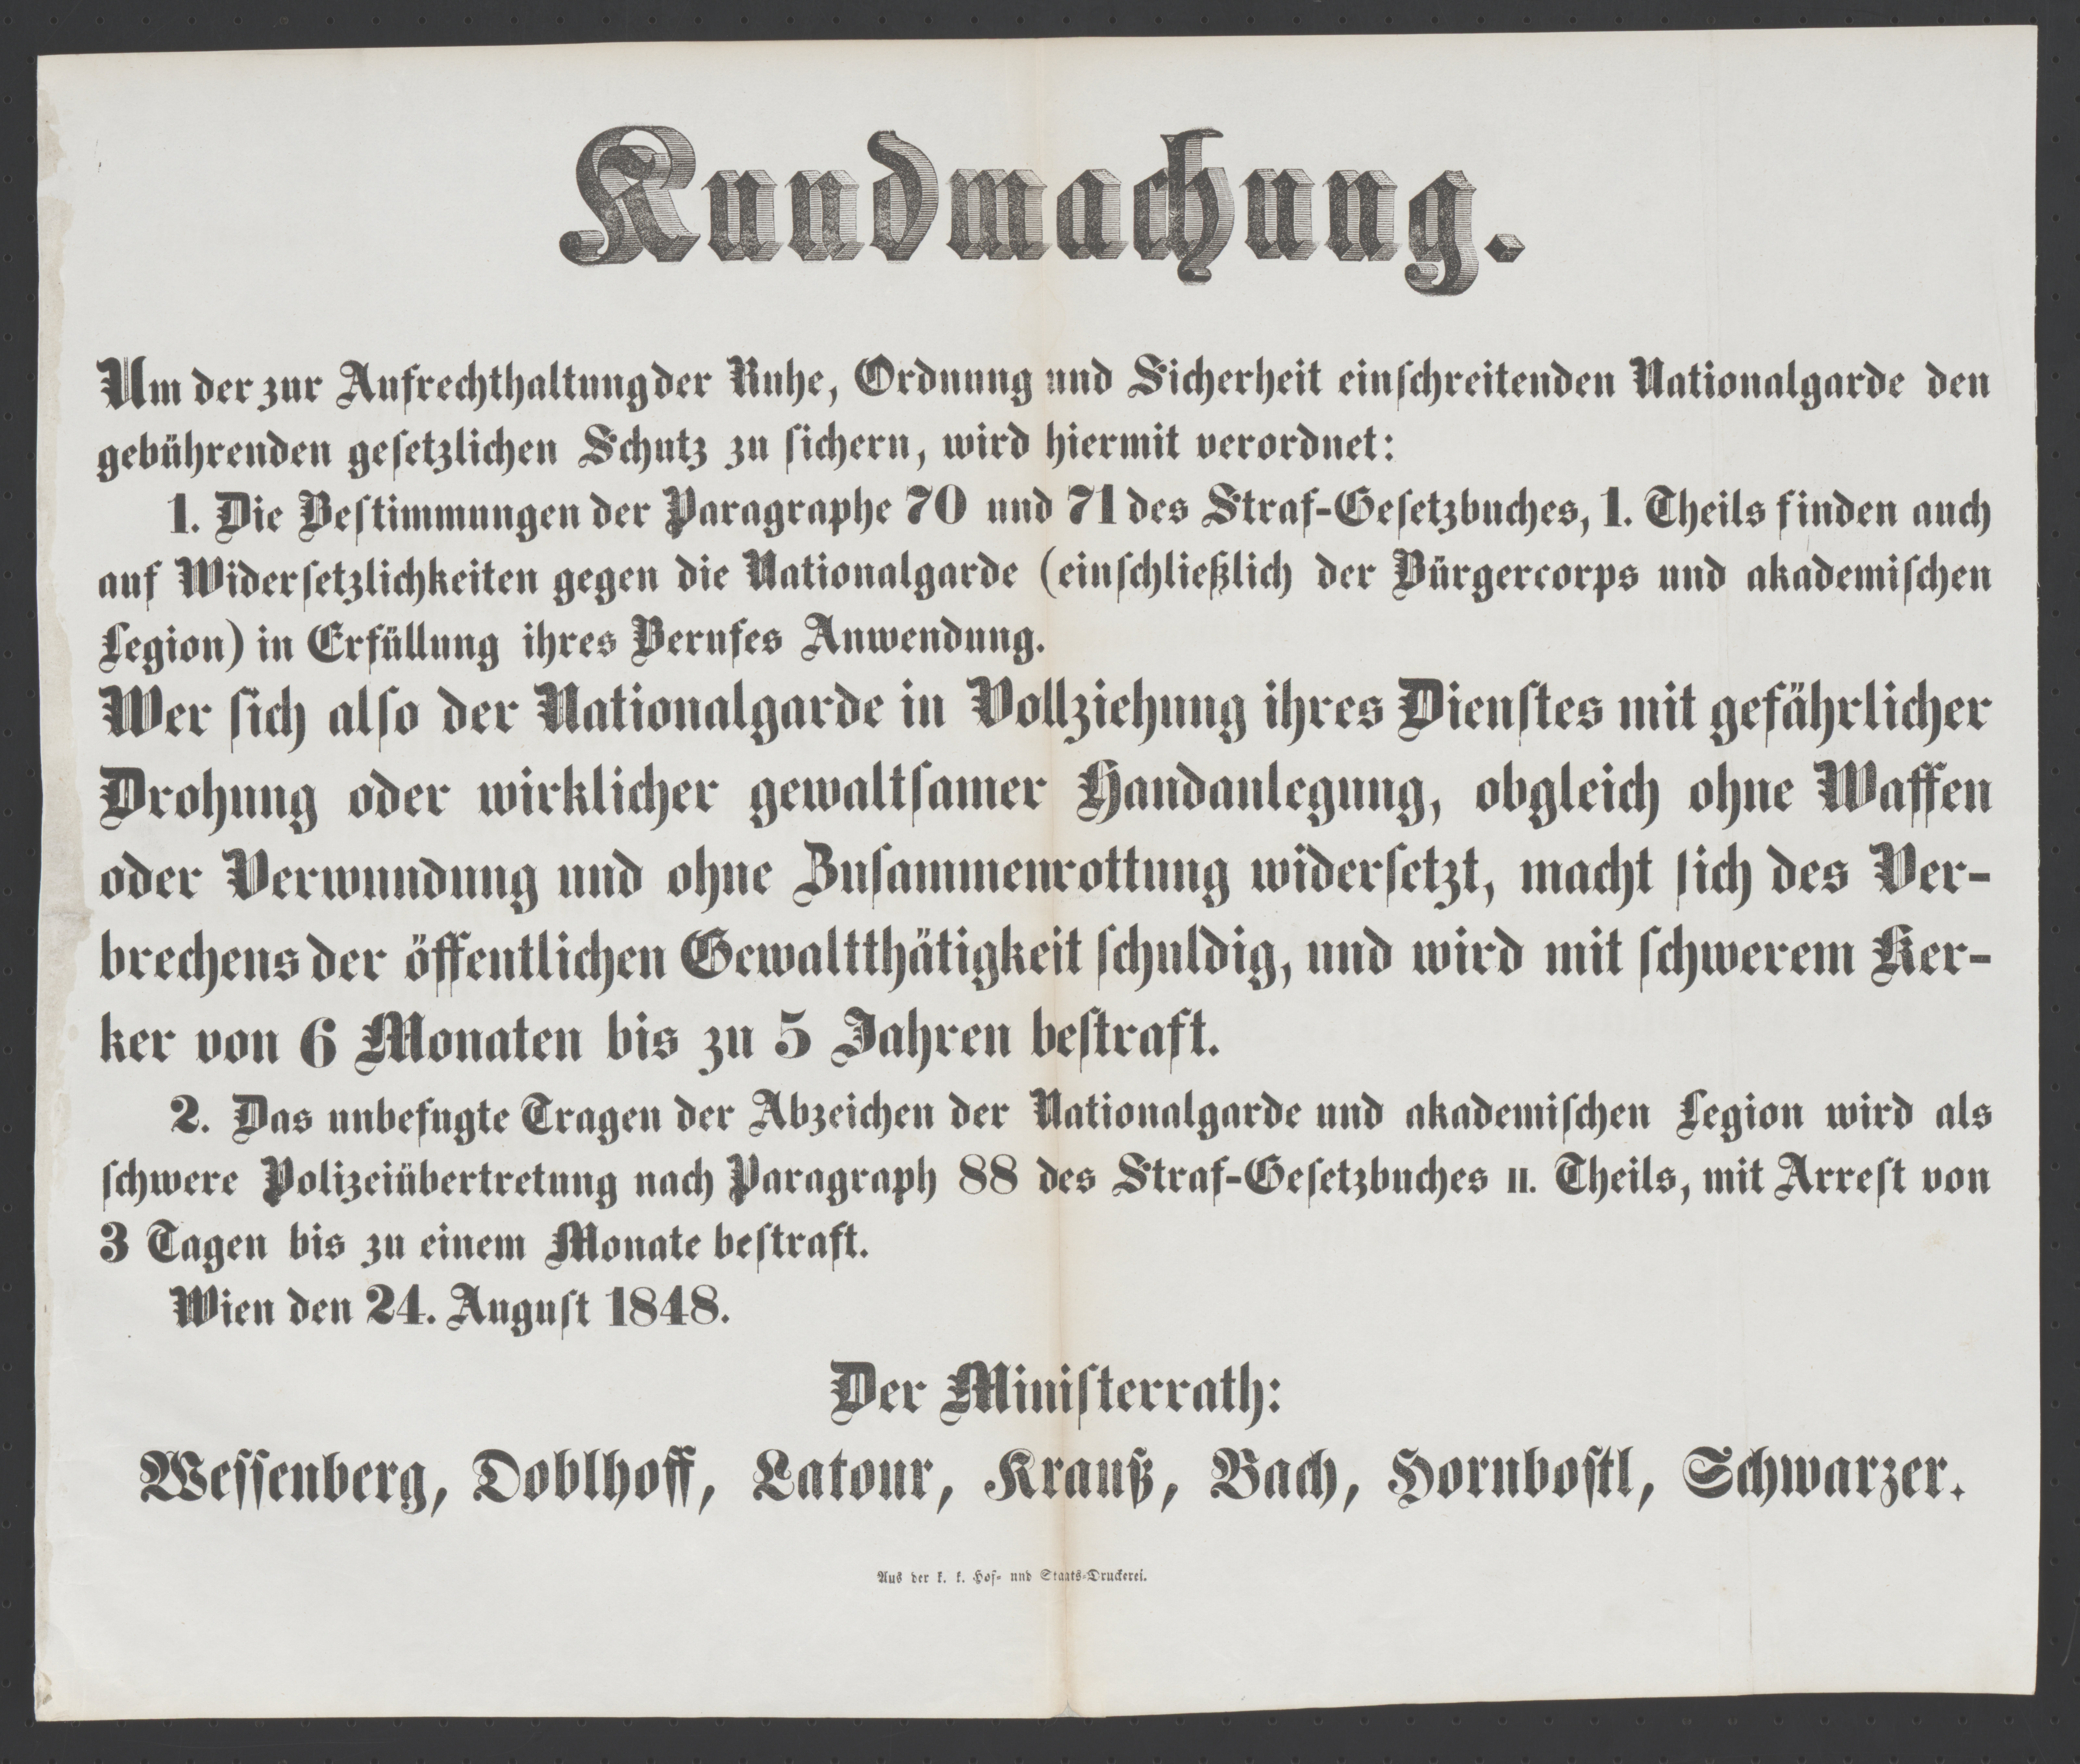 Kundmachung.
Um der zur Aufrechthaltung der Ruhe, Ordnung und Sicherheit einſchreitenden Nationalgarde den
gebührenden geſetzlichen Schutz zu ſichern, wird hiermit verordnet:
1. Die Beſtimmungen der Paragraphe 70 und 71 des Straf-Geſetzbuches, 1. Theils finden auch
auf Widerſetzlichkeiten gegen die Nationalgarde (einſchließlich der Bürgercorps und akademiſchen
Legion) in Erfüllung ihres Berufes Anwendung.
Wer ſich alſo der Nationalgarde in Vollziehung ihres Dienſtes mit gefährlicher
Drohung oder wirklicher gewaltſamer Handanlegung, obgleich ohne Waffen
oder Verwundung und ohne Zuſammenrottung widerſetzt, macht ſich des Ver-
brechens der öffentlichen Gewaltthätigkeit ſchuldig, und wird mit ſchwerem Ker-
ker von 6 Monaten bis zu 5 Jahren beſtraft.
2. Das unbefugte Tragen der Abzeichen der Nationalgarde und akademiſchen Legion wird als
ſchwere Polizeiübertretung nach Paragraph 88 des Straf-Geſetzbuches II. Theils, mit Arreſt von
3 Tagen bis zu einem Monate beſtraft.
Wien den 24. Auguſt 1848.
Der Miniſterrath:
Weſſenberg, Doblhoff, Latour, Krauß, Bach, Hornboſtl, Schwarzer.
Aus der k. k. Hof- und Staats-Druckerei.